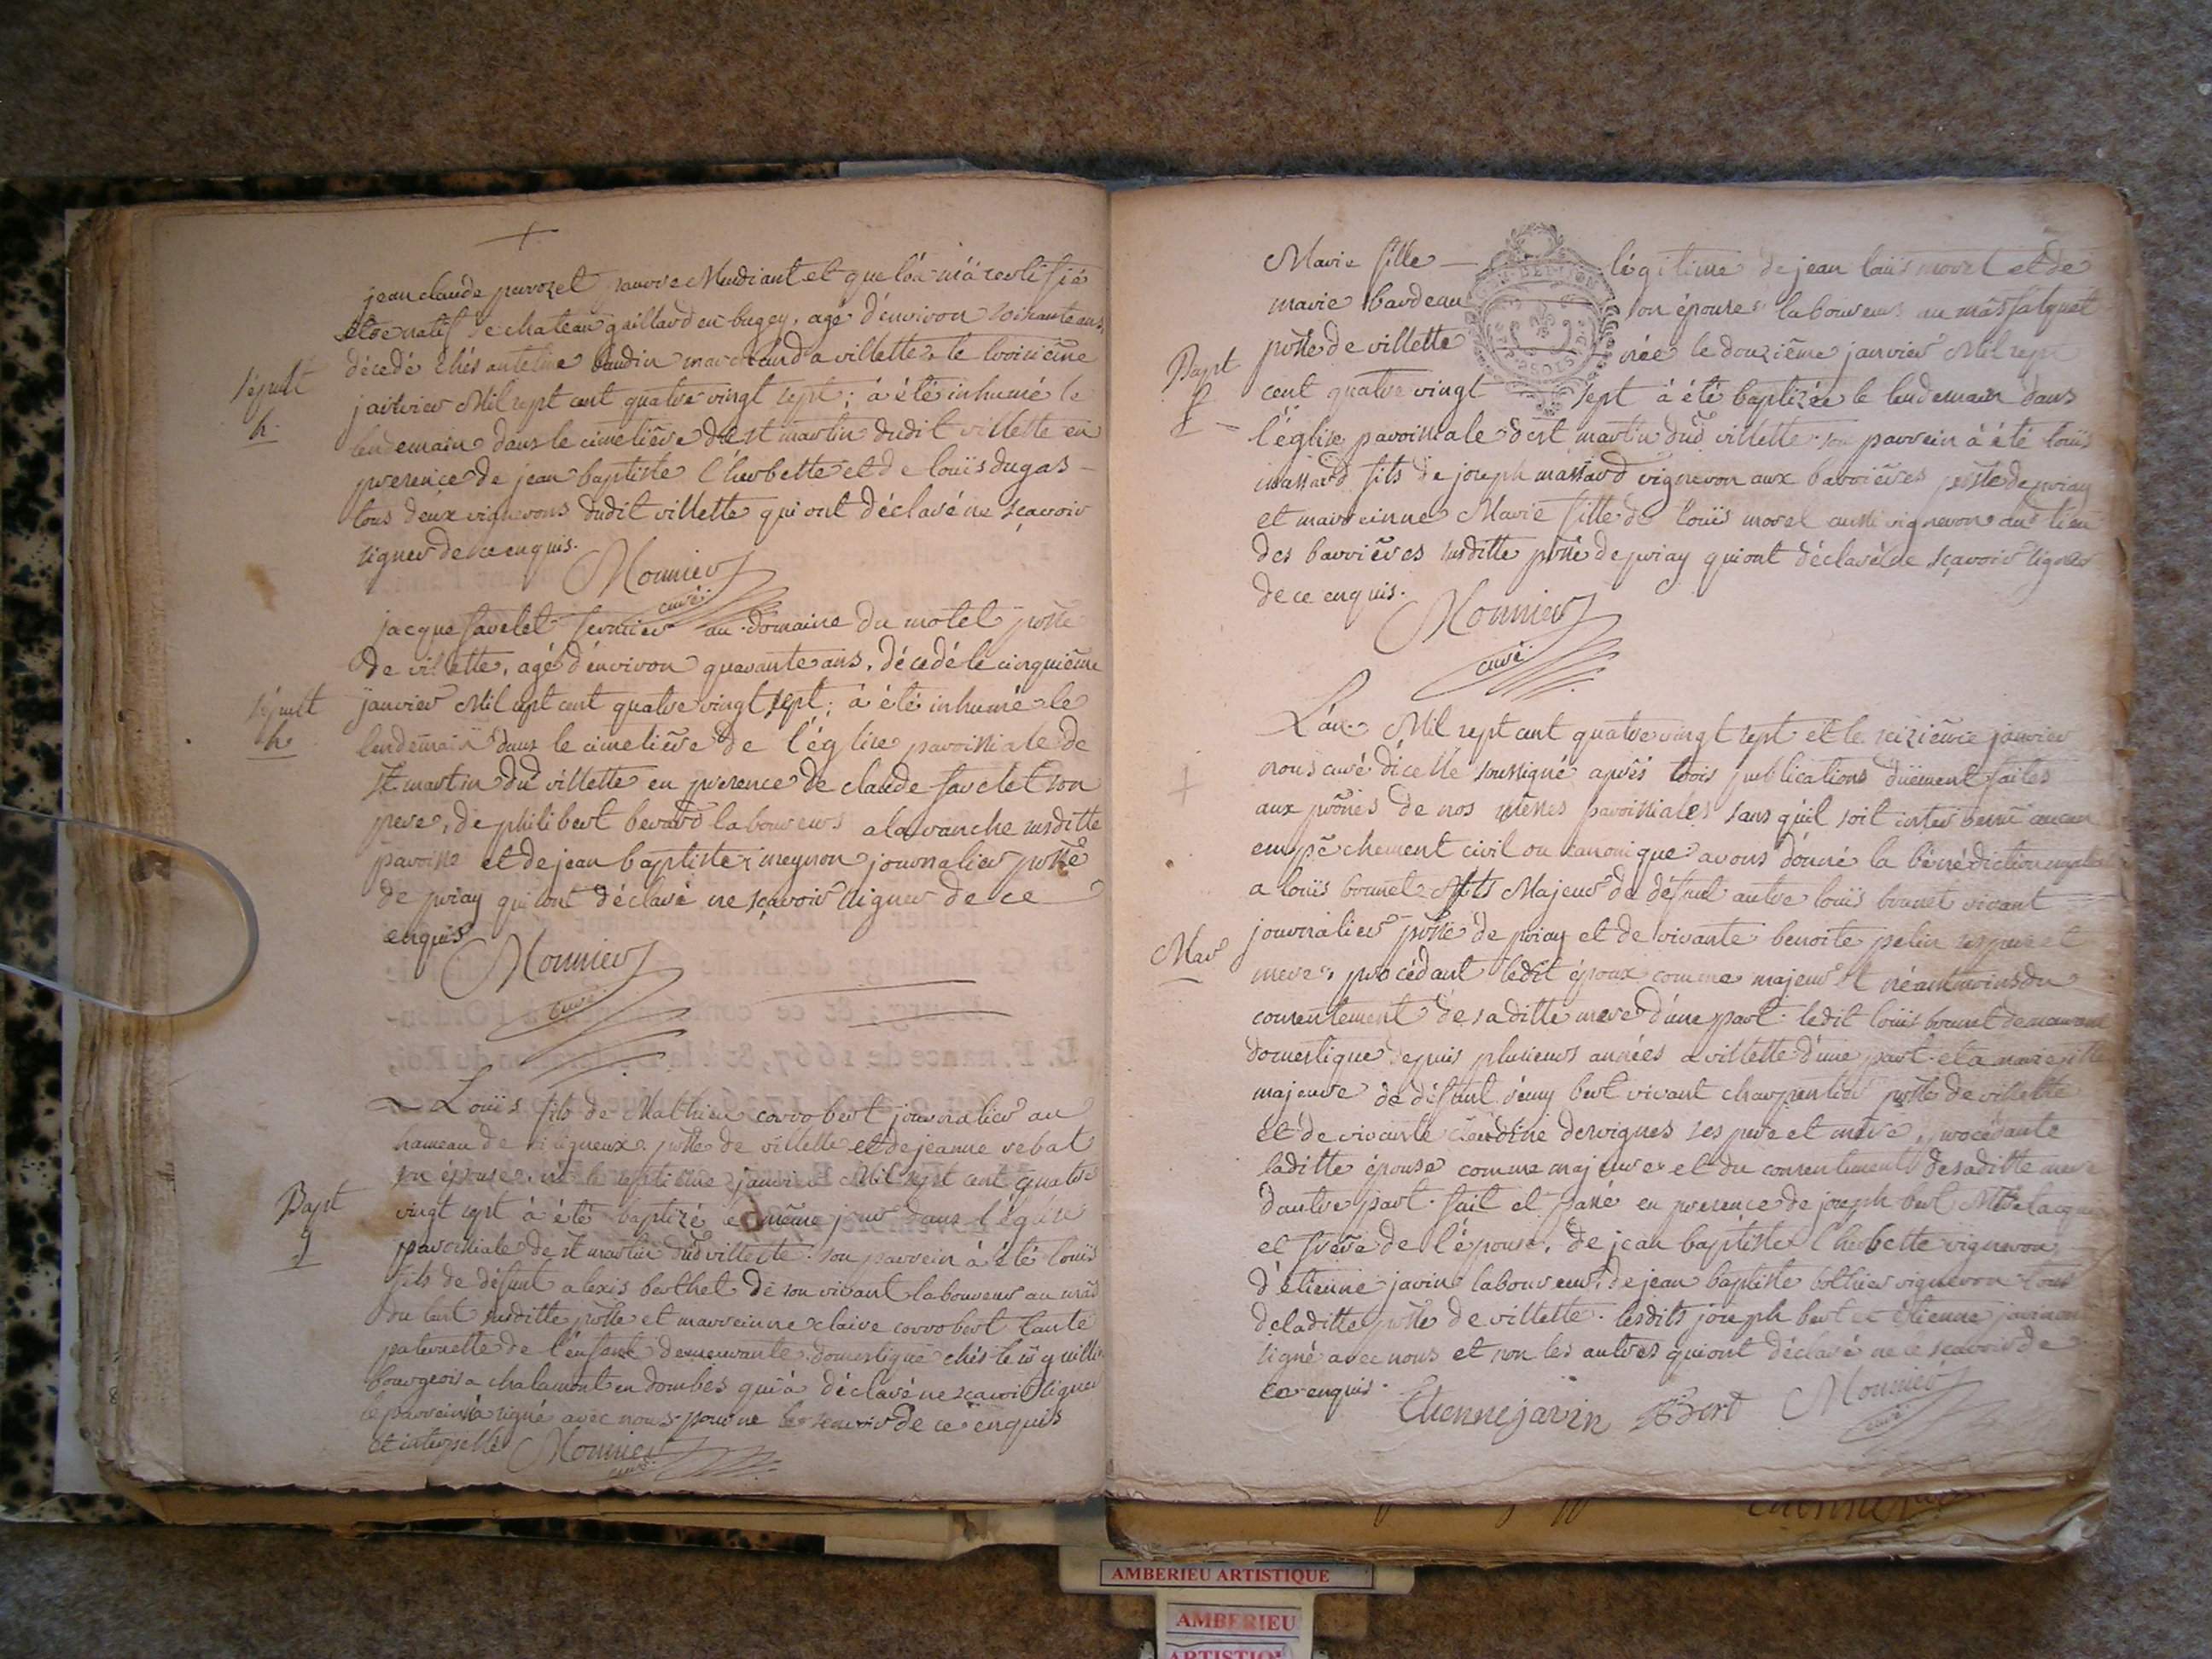 jean claude pervozet pauvre Mendiant et que l'on m'a certifié
être natif de chateau gaillard en bugey, agé d'environ soixante ans,
décedé chés antelme baudin marchand a villette le troisième
janvier Mil sept cent quatre vingt sept; à été inhumé le
lendemain dans le cimetière de st martin dudit villette en
presence de jean baptiste l'herbette et de loüis dugas
tous deux vignerons dudit villette qui ont déclaré ne sçavoir
signer de ce enquis.
Monnier
curé
sépult
h.
jacque favelet fermier au domaine du motel psse
de villette, agé d'environ quarante ans, décedé le cinquième
janvier Mil sept cent quatre vingt sept; à été inhumé le
lendemain dans le cimetière de l'église paroissiale de
st martin dud villette en presence de claude favelet son
pere, de philibert berard laboureurs a la ranche susditte
paroisse et de jean baptiste meynon journalier psse
de priay qui ont déclaré ne sçavoir signer de ce
enquis
Monnier
curé
sépult
h.
Loüis fils de Mathieu corrobert journalier au
hameau de ligneux psse de villette et de jeanne rebat
son épouse, né le septième janvier Mil sept cent quatre
vingt sept à été baptizé le même jour dans l'église
paroissiale de st martin dud villette son parrein à été loüis
fils de défunt alexis berthet de son vivant laboureur au mas
du susditte psse et marreinne claire corrobert tante
paternelle de l'enfant demeurante domestique chés le sr
bourgeois a chalamont en dombes qui à déclaré ne sçavoir signer
le parrein à signé avec nous de ce enquis
et interpellé Monnier
curé
Bapt
g
Marie fille légitime de jean loüis morel et de
marie bardeau son épouse laboureurs au mas
psse de villette née le douzième janvier Mil sept
cent quatre vingt sept à été baptizée le lendemain dans
l'église paroissiale de st martin dud villette son parrein à été loüis
massard fils de joseph massard vigneron aux barrières psse de priay
et marreinne Marie fille de loüis morel aussi vigneron au lieu
des barrières susditte psse de priay qui ont déclaré ne sçavoir signer
de ce enquis.
Monnier
curé
Bapt
f
L'an Mil sept cent quatre vingt sept et le seizième janvier
nous curé d'icelle soussigné après trois publications düement faites
aux prônes de nos messes paroissiales sans qu'il soit intervenu aucun
empêchement civil ou canonique avons donné la bénédiction nuptiale
a loüis brunet fils Majeur de défunt autre loüis brunet vivant
journalier psse de priay et de vivante benoite pelin ses pere et
mere, procédant ledit époux comme majeur et néantmoins du
consentement de saditte mere d'une part. ledit loüis brunet demeurant
domestique depuis plusieurs années a villette d'une part. et a marie fille
majeure de défunt rémy bert vivant charpentier psse de villette
et de vivante claudine dervignes ses pere et mere, procédante
laditte épouse comme majeure et du consentement de saditte mere
d'autre part. fait et passé en presence de joseph bert
et frère de l'épouse, de jean baptiste l'herbette vigneron
d'étienne javin laboureur, de jean baptiste bothier vigneron tous
de laditte psse de villette. lesdits joseph bert et étienne javin ont
signé avec nous et non les autres qui ont déclaré ne sçavoir de
ce enquis.
Etienne javin Bert Monnier
curé
Mar
AMBERIEU ARTISTIQUE
AMBERIEU
ARTISTIQUE